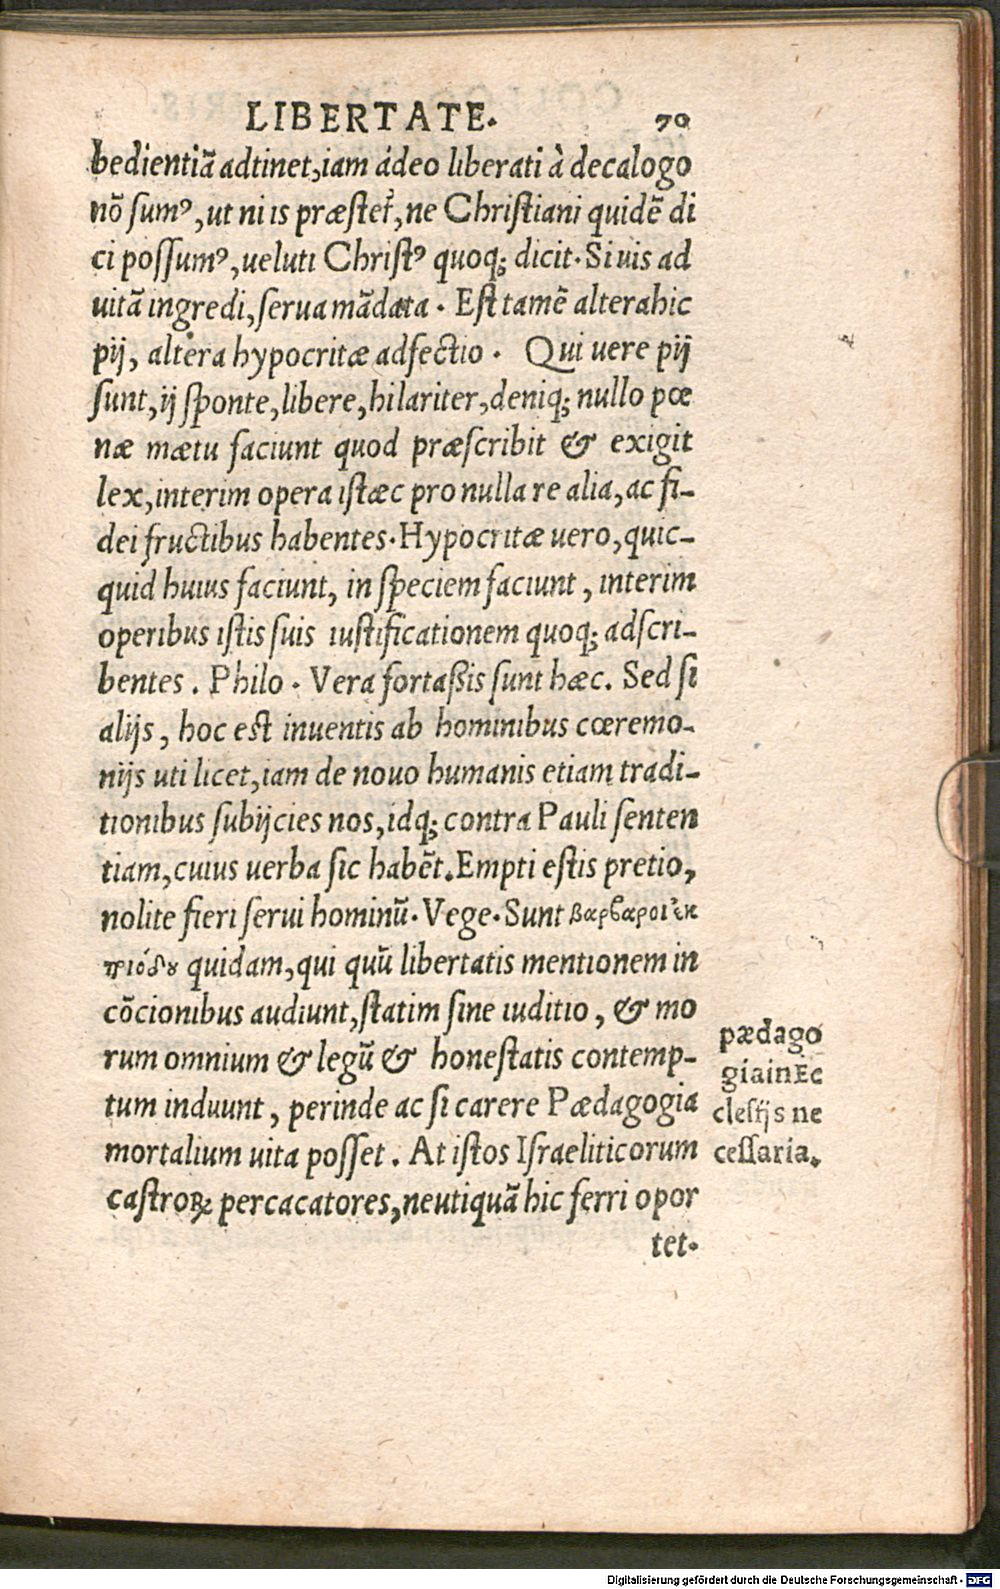 LIBERTATE. 70
bedientiã adtinet,iam ádeo liberati à decalogo
nõ sumꝰ,ut ni is præstet̃,ne Christiani quidẽ di
ci possumꝰ,ueluti Christꝰ quoq; dicit. Si uis ad
uitã ingredi,serua mãdata. Est tamẽ altera hic
pij, altera hypocritæ adfectio. Qui uere pij
sunt,ij sponte,libere,hilariter,deniq; nullo pœ
næ mætu faciunt quod præscribit & exigit
lex,interim opera istæc pro nulla re alia,ac fi-
dei fructibus habentes.Hypocritæ uero,quic-
quid huius faciunt, in speciem faciunt, interim
operibus istis suis iustificationem quoq; adscri-
bentes. Philo. Vera fortaßis sunt hæc. Sed si
alijs, hoc est inuentis ab hominibus cœremo-
nijs uti licet,iam de nouo humanis etiam tradi-
tionibus subijcies nos,idq; contra Pauli senten
tiam,cuius uerba sic habẽt.Empti estis pretio,
nolite fieri serui hominũ. Vege. Sunt βαρβαροι ἐκ
τριόδȣ quidam,qui quũ libertatis mentionem in
cõcionibus audiunt,statim sine iuditio, & mo
rum omnium & legũ & honestatis contemp-
tum induunt, perinde ac si carere Pædagogia
mortalium uita posset. At istos Israeliticorum
castroꝝ percacatores,neutiquã hic ferri opor
tet.
pædago
gia in Ec
clesijs ne
cessaria.
Digitalisierung gefördert durch die Deutsche Forschungsgemeinschaft - DFG